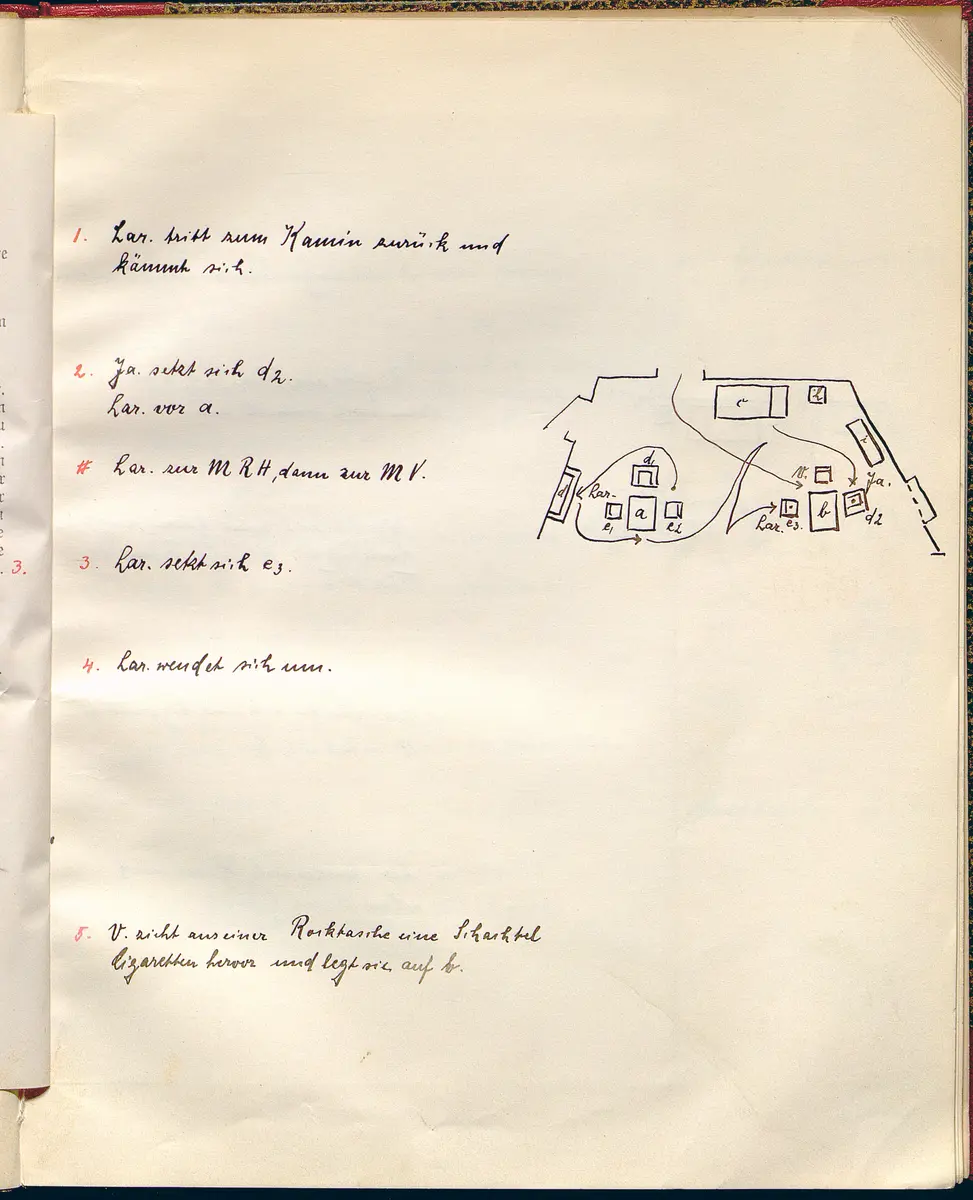 1. Lar. tritt zum Kamin zurück und
kämmt sich.
2. Ja. setzt sich d2.
Lar. vor a.
# Lar. zur M R H, dann zur M V.
3.
3. Lar. setzt sich e3.
4. Lar. wendet sich um.
5. V. zieht aus einer Rocktasche eine Schachtel
Cigaretten hervor und legt sie auf b.
c
h
i
d
d1
Lar.
e1
a
e2
V.
Ja.
Lar. e3.
b
d2